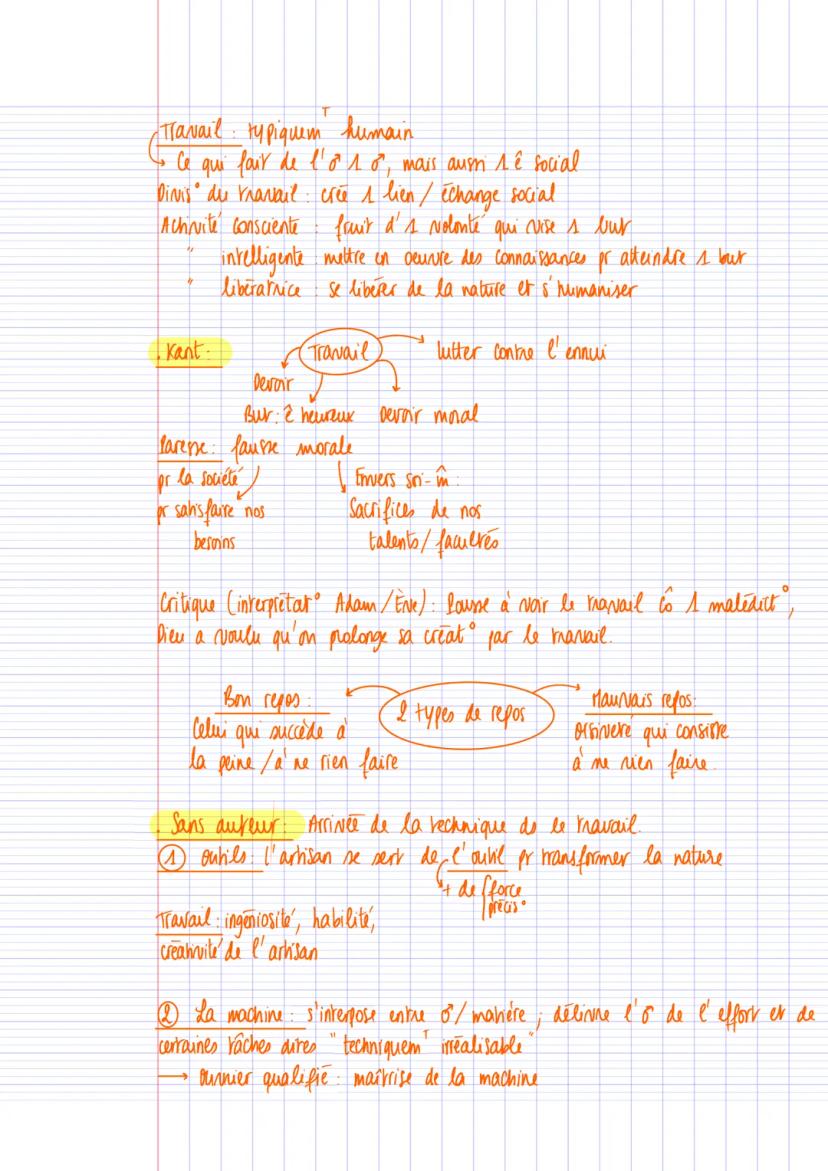 Travail : typiquemᵀ humain
↳ Ce qui fait de l'♂ 1 ♂, mais aussi 1 ê social
Divis° du travail : crée 1 lien / échange social
Activité consciente : fruit d'1 volonté qui vise 1 but
" intelligente : mettre en oeuvre des connaissances pr atteindre 1 but
" libératrice : se libérer de la nature et s'humaniser
. Kant : Travail → lutter contre l'ennui
Devoir
But : ê heureux Devoir moral
Paresse : fausse morale
pr la société Envers soi-m̂ :
pr satisfaire nos Sacrifices de nos
besoins talents / facultés
Critique (interprétat° Adam / Ève) : Pousse à voir le travail cô 1 malédict°,
Dieu a voulu qu'on prolonge sa créat° par le travail.
Bon repos : 2 types de repos Mauvais repos :
Celui qui succède à oisiveté qui consiste
la peine / à ne rien faire à ne rien faire.
. Sans auteur : Arrivée de la technique ds le travail.
① Outils : l'artisan se sert de l'outil pr transformer la nature
+ de force
précis°
Travail : ingéniosité, habilité,
créativité de l'artisan
② La machine : s'interpose entre ♂ / matière ; délivre l'♂ de l'effort et de
certaines tâches dites "techniquemᵀ irréalisable"
→ Ouvrier qualifié : maîtrise de la machine